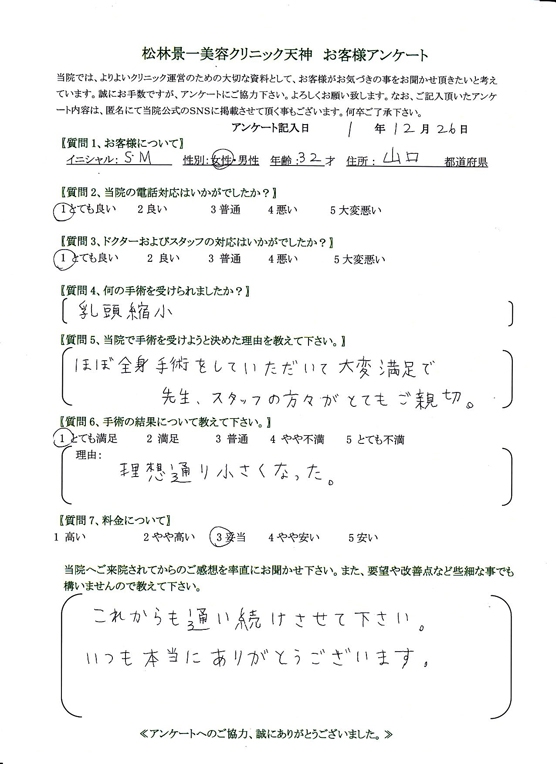 松林景一美容クリニック天神 お客様アンケート
当院では、よりよいクリニック運営のための大切な資料として、お客様がお気づきの事をお聞かせ頂きたいと考え
ています。誠にお手数ですが、アンケートにご協力下さい。よろしくお願い致します。なお、ご記入頂いたアンケ
ート内容は、匿名にて当院公式のSNSに掲載させて頂く事もございます。何卒ご了承下さい。
アンケート記入日 1 年 12 月 26 日
〖質問1、お客様について〗
イニシャル: S.M 性別:女性・男性 年齢:32才 住所: 山口 都道府県
〖質問2、当院の電話対応はいかがでしたか?〗
1とても良い 2 良い 3 普通 4悪い 5大変悪い
〖質問3、ドクターおよびスタッフの対応はいかがでしたか?〗
1とても良い 2 良い 3 普通 4悪い 5大変悪い
〖質問4、何の手術を受けられましたか?〗
乳頭縮小
〖質問5、当院で手術を受けようと決めた理由を教えて下さい。〗
ほぼ全身手術をしていただいて大変満足で
先生、スタッフの方々がとてもご親切。
〖質問6、手術の結果について教えて下さい。〗
1とても満足 2 満足 3 普通 4 やや不満 5 とても不満
理由:
理想通り小さくなった。
〖質問7、料金について〗
1 高い 2やや高い 3妥当 4やや安い 5安い
当院へご来院されてからのご感想を率直にお聞かせ下さい。また、要望や改善点など些細な事でも
構いませんので教えて下さい。
これからも通い続けさせて下さい。
いつも本当にありがとうございます。
≪アンケートへのご協力、誠にありがとうございました。≫